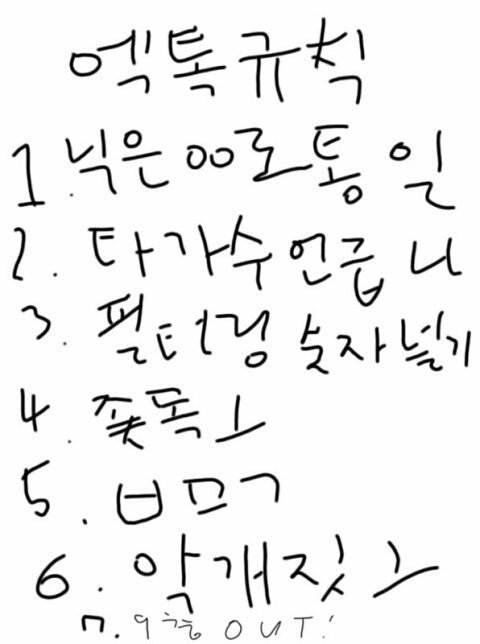 엑톡규칙
1. 닉은 oo로 통일
2. 타가수 언급 ㄴㄴ
3. 필터링 숫자 넣기
4. ㅗ
5. ㅂㅁㄱ
6. 악개짓ㅗ
7. 9층 OUT!